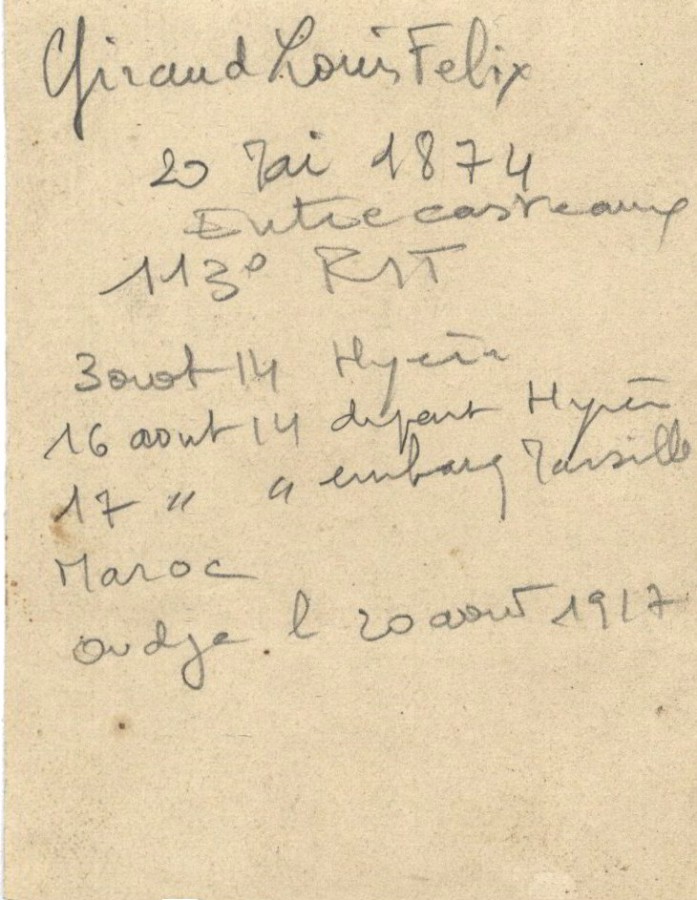 Giraud Louis Felix
20 Mai 1874
Entrecasteaux
113e RIT
3 aout 14 Hyères
16 aout 14 depart Hyères
17 " " embarq Marseille
Maroc
Oudja l 20 aout 1917